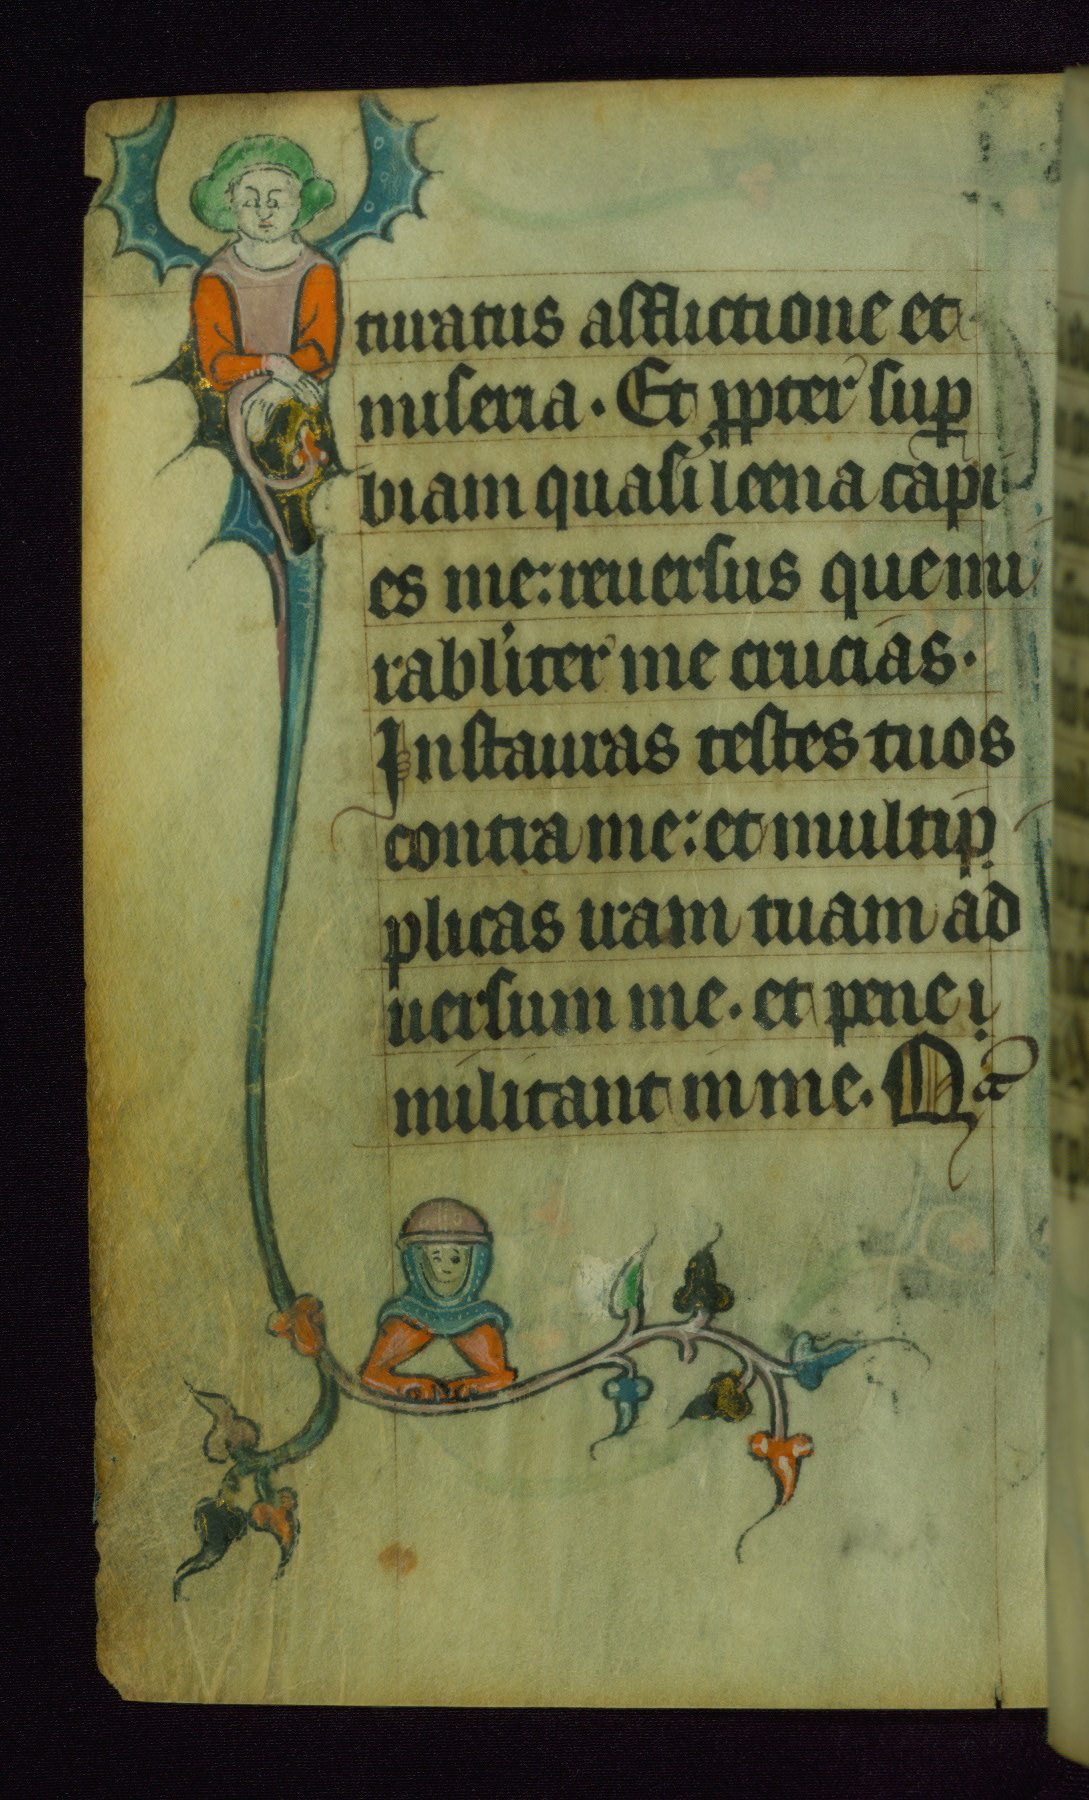 turatus afflictione et
miseria. Et ꝓpter suꝑ
biam quasi leena capi
es me: reuersusque mi
rabiliter me crucias.
Instauras testes tuos
contra me: et multip
plicas iram tuam ad
uersum me. et pene i
militant in me. Qͣ